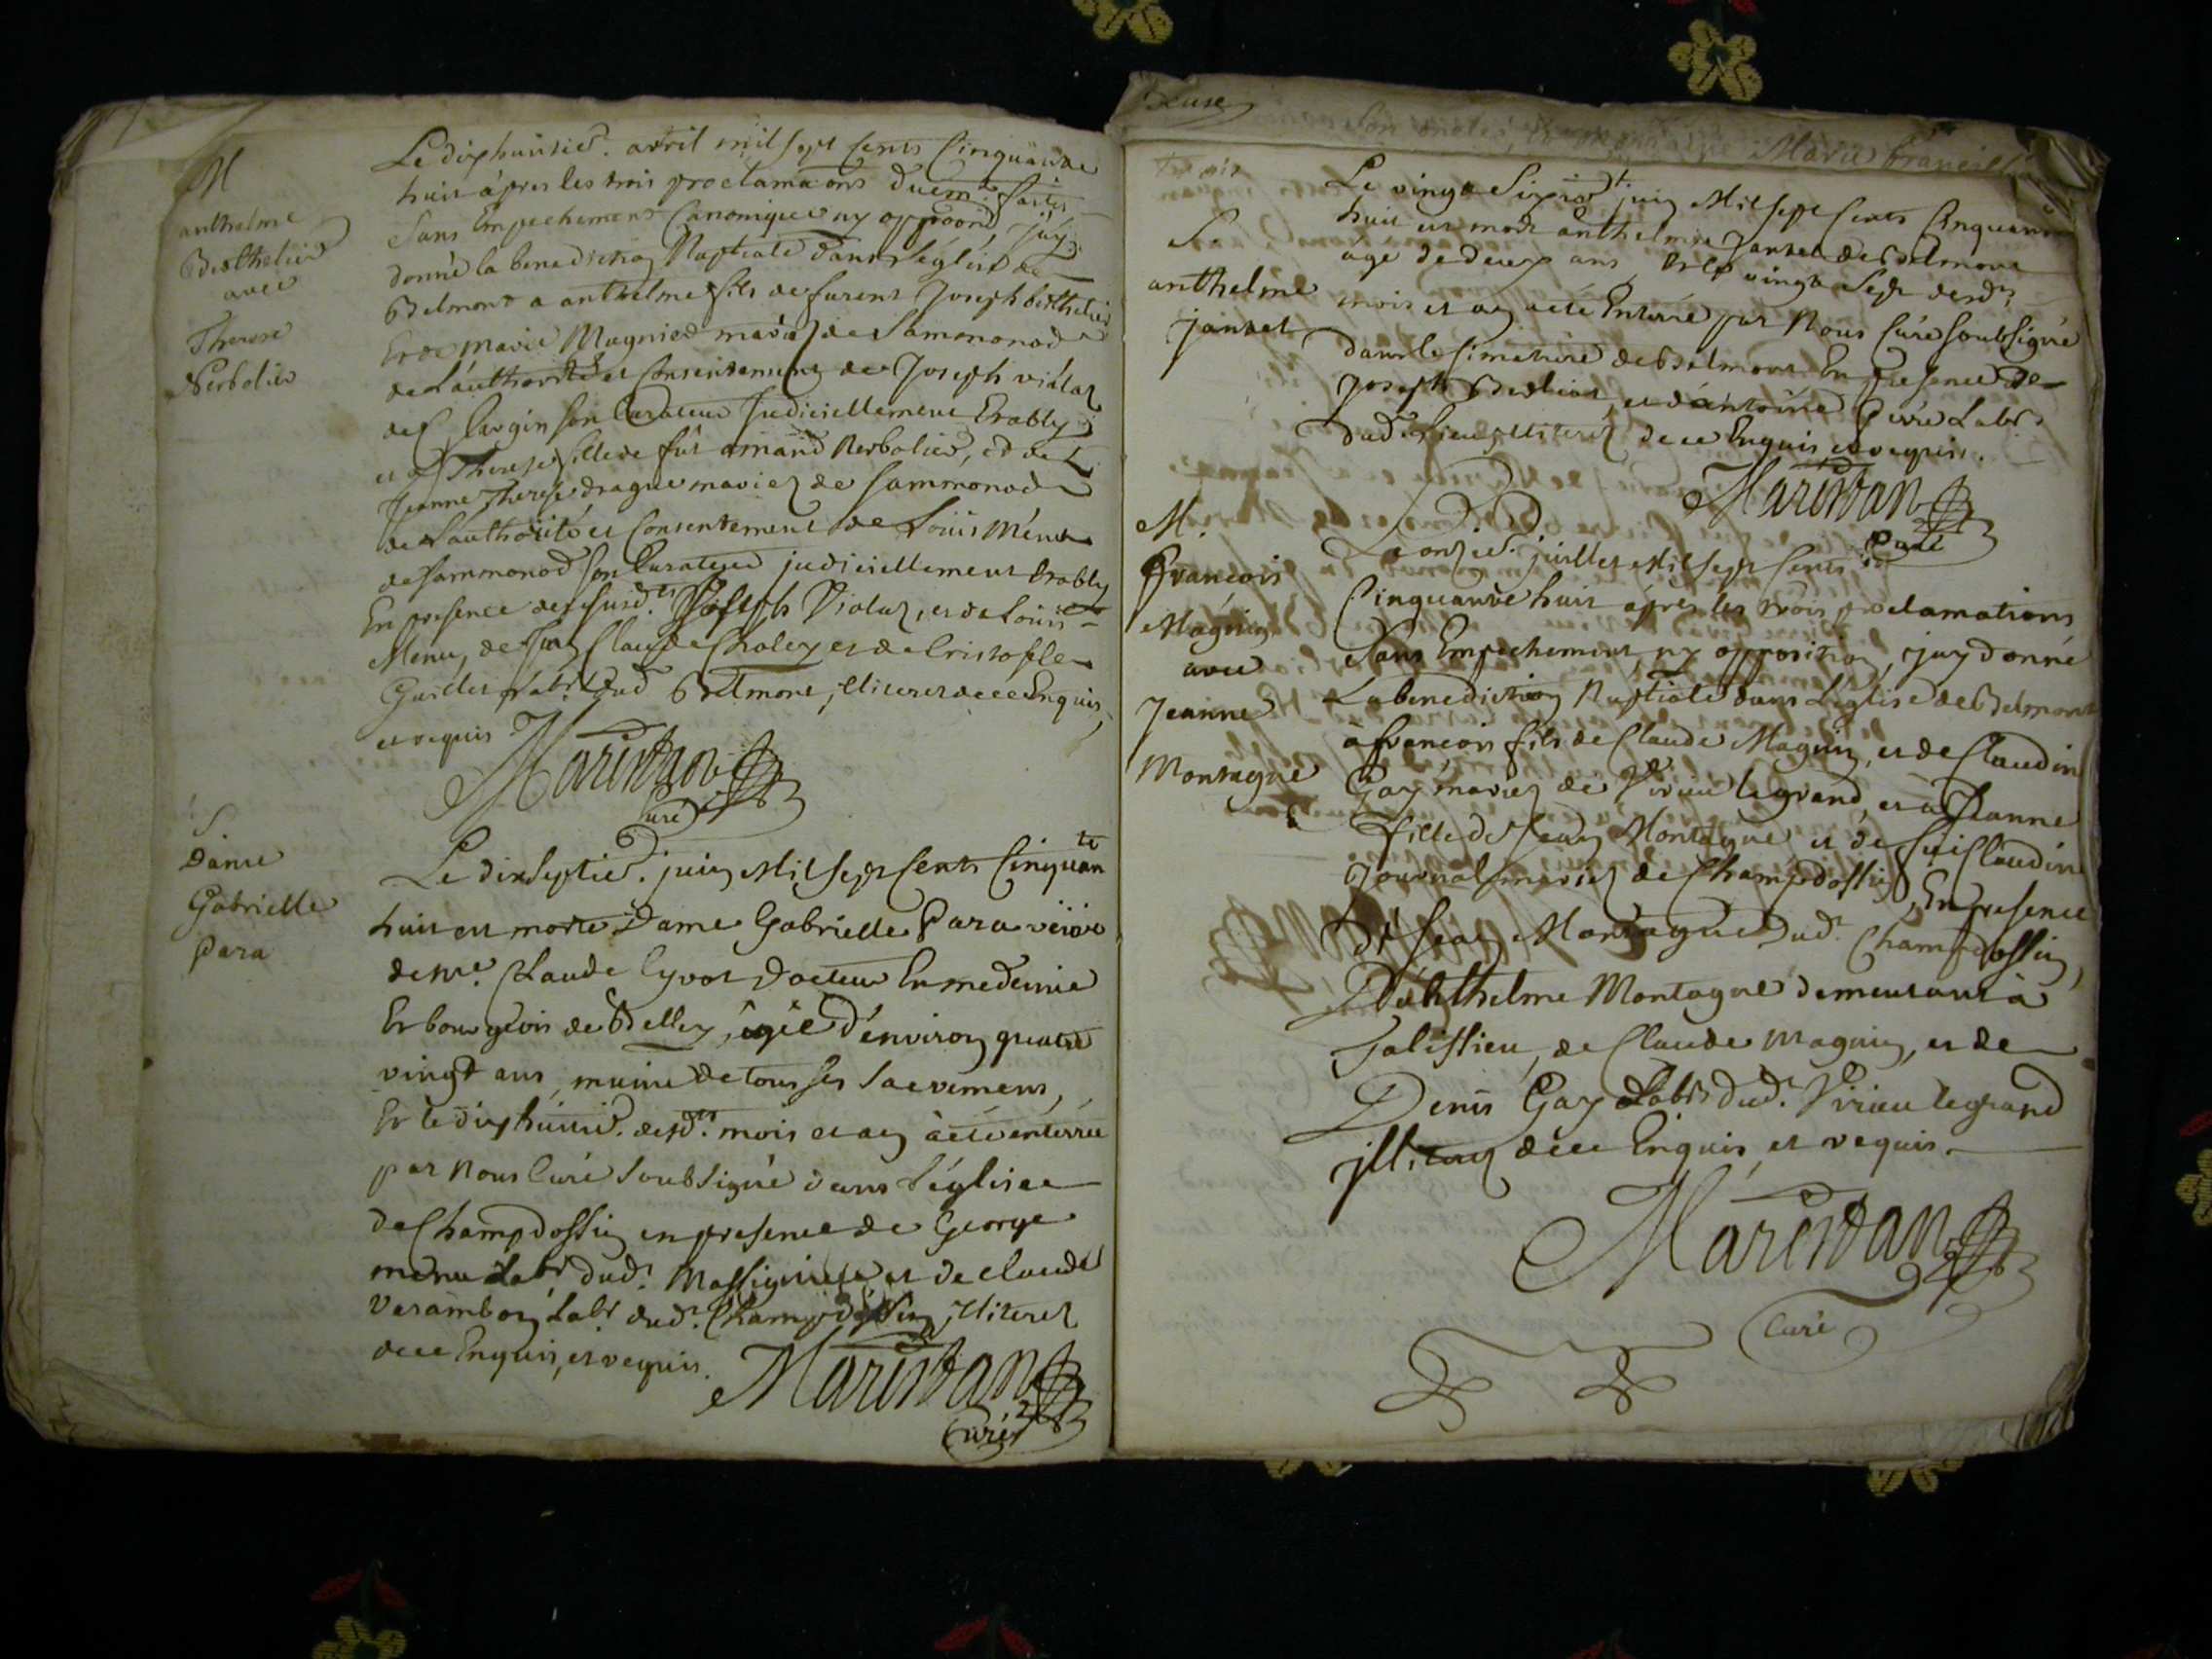 M
anthelme
Berthelier
avec
Therese
Nerbolier
Le dixhuitie. avril mil sept cents Cinquante
huit àpres les trois proclamaons duem.t faites
Sans Empechement Canonique ny oppoon, jáy
donné la benediction Nuptiale dans l'église de
Belmont a anthelme fils de furent Joseph berthelier
Et de marie Magnied mariez de Sammonod
de L'authorité et Consentement de Joseph violaz
de son Curateur Judiciellement Etably
et a Therese fille de fût amand Nerbolier, et de
Jeanne Therese dragne mariez de Sammonod
de L'authorité et Consentement de Loüis Menu
de Sammonod son Curateur judiciellement Etably
En presence desusd.ts Joseph Violaz, et de Loüis
Menu, de Claude Choley et de Cristofle
Guillet Lab.r dud Belmont, illiterez de ce Enquis,
et requis
Maristan
Curé
S
Dame
Gabrielle
Para
Le dixseptie. juin Mil sept Cents Cinquan te
huit est morte Dame Gabrielle Para veüve
de m.e Claude Cyvot Docteur En medecine
Et bourgeois de Belley, agée d'environ quatre
vingt ans, munie de tous ses Sacremens,
Et le dixhuitie. desd.ts mois et an à eté enterrée
par Nous Curé Soubsigné dans l'église
de Champdossin en presence de George
menu Lab.r dud. Massignieu et de claude
Verambon Lab.r dud. Champdossin, illiterez
de ce Enquis, et requis.
Maristan
Curé
Marie françoise
S
anthelme
jantet
Le vingt Six juin Mil sept Cents Cinquante
huit est mort anthelme Jantet de Belmont
age de deux ans, Et le vingt Sept desd.ts
mois et an a eté Enterré par Nous Curé Soubsigné
dans le Cimetiere de Belmont En presence de
Joseph Berlioz, et d'antoine Perre Lab.rs
dud. Lieu illiterez de ce Enquis et requis.
Maristan
Curé
M.
François
Magnin
avec
Jeanne
Montagne
Le onzie. juillet Mil sept Cents
Cinquante huit àpres les trois proclamations
Sans Empechement, ny opposition, j'ay donné
La benediction Nuptiale dans L'église de Belmont
a françois fils de Claude Magnin, et de Claudine
Gay mariez de Virieu le grand, et a Jeanne
fille de Jean Montagne et de füe Claudine
Journal mariez de Champdossin, En presence
de Jean Montagne dud. Champdossin,
D'anthelme Montagne demeurant à
Talissieu, de Claude Magnin, et de
Denis Gay Lab.rs dud. Virieu le grand
illiterez de ce Enquis et requis.
Maristan
Curé